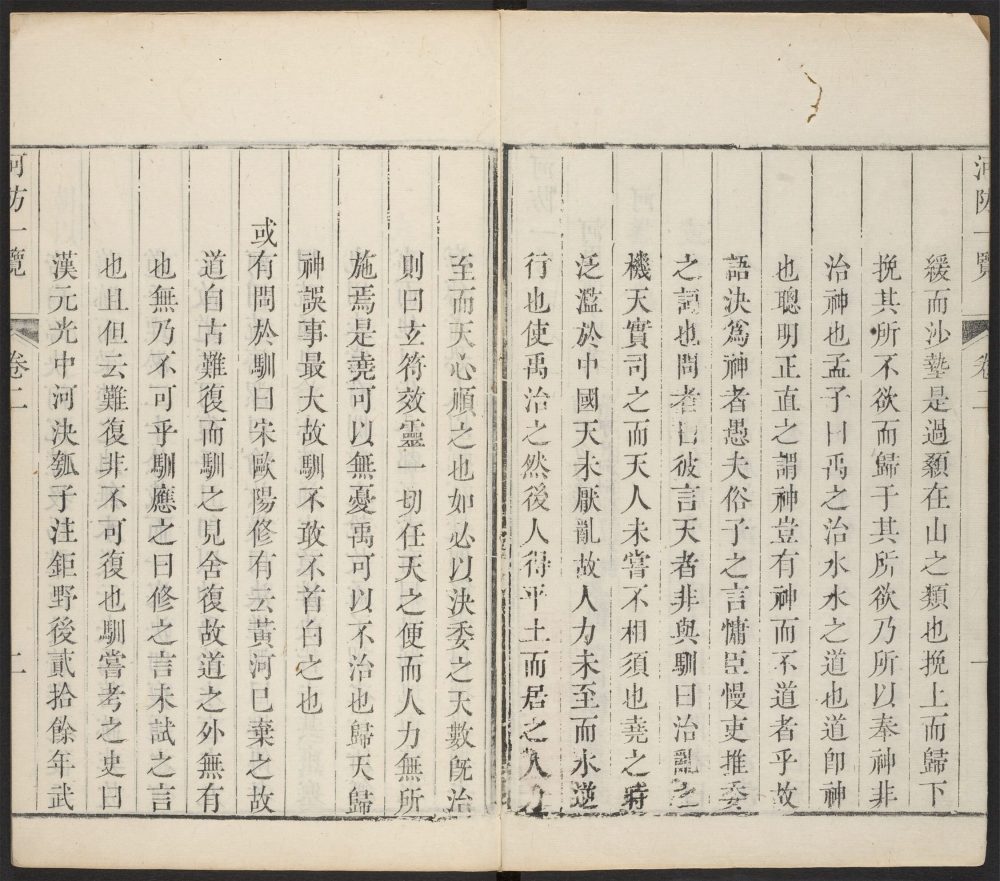 河防一覽 卷二 一
緩而沙墊是過顙在山之類也挽上而歸下
挽其所不欲而歸于其所欲乃所以奉神非
治神也孟子曰禹之治水水之道也道卽神
也聰明正直之謂神豈有神而不道者乎故
語決爲神者愚夫俗子之言慵臣慢吏推委
之詞也問者曰彼言天者非與馴曰治亂之
機天實司之而天人未嘗不相須也堯之時
泛濫於中國天未厭亂故人力未至而水逆
行也使禹治之然後人得平土而居之人力
至而天心順之也如必以決委之天數旣治
則曰玄符效靈一切任天之便而人力無所
施焉是堯可以無憂禹可以不治也歸天歸
神誤事最大故馴不敢不首白之也
或有問於馴曰宋歐陽修有云黃河已棄之故
道自古難復而馴之見舍復故道之外無有
也無乃不可乎馴應之曰修之言未試之言
也且但云難復非不可復也馴嘗考之史曰
漢元光中河決瓠子注鉅野後貳拾餘年武
河防一覽 卷二 二